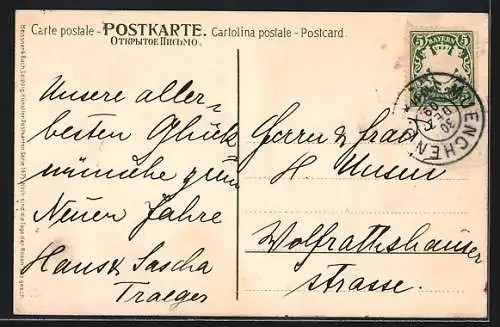 Carte postale - POSTKARTE. Cartolina postale - Postcard.
ОТКРЫТОЕ ПИСЬМО.
5 BAYERN 5
MUENCHEN
30 DEZ
Unsere aller-
besten Glück
wünsche zum
Neuen Jahre
Hans & Sascha
Traeger
Herrn & Frau
H Unsin
Wolfrathshauser
strasse.